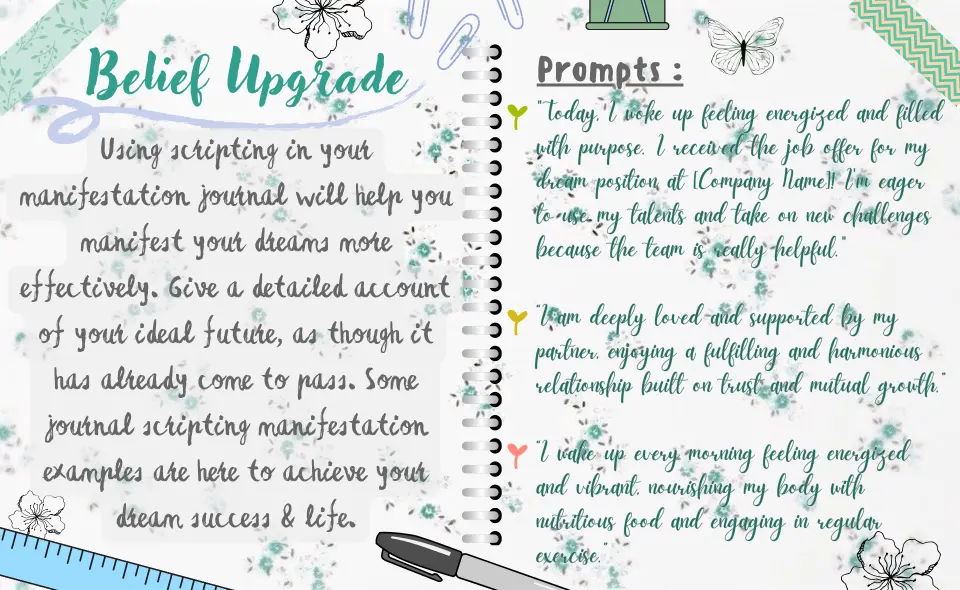 Belief Upgrade
Using scripting in your
manifestation journal will help you
manifest your dreams more
effectively. Give a detailed account
of your ideal future, as though it
has already come to pass. Some
journal scripting manifestation
examples are here to achieve your
dream success & life.
Prompts :
"Today, I woke up feeling energized and filled
with purpose. I received the job offer for my
dream position at [Company Name]! I'm eager
to use my talents and take on new challenges
because the team is really helpful."
"I am deeply loved and supported by my
partner, enjoying a fulfilling and harmonious
relationship built on trust and mutual growth."
"I wake up every morning feeling energized
and vibrant, nourishing my body with
nutritious food and engaging in regular
exercise."